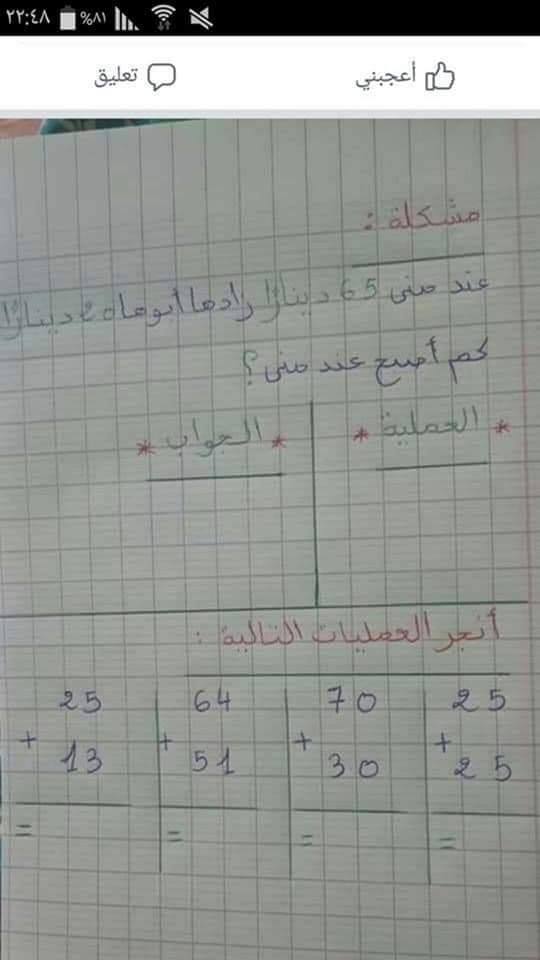 ٢٢:٤٨ %٨١
أعجبني تعليق
مشكلة :
عند منى 65 دينارًا زادها أبوها 20 دينارًا
كم أصبح عند منى؟
* العملية * * الجواب *
أنجز العمليات التالية :
25 64 70 25
+ + + +
13 51 30 25
= = = =